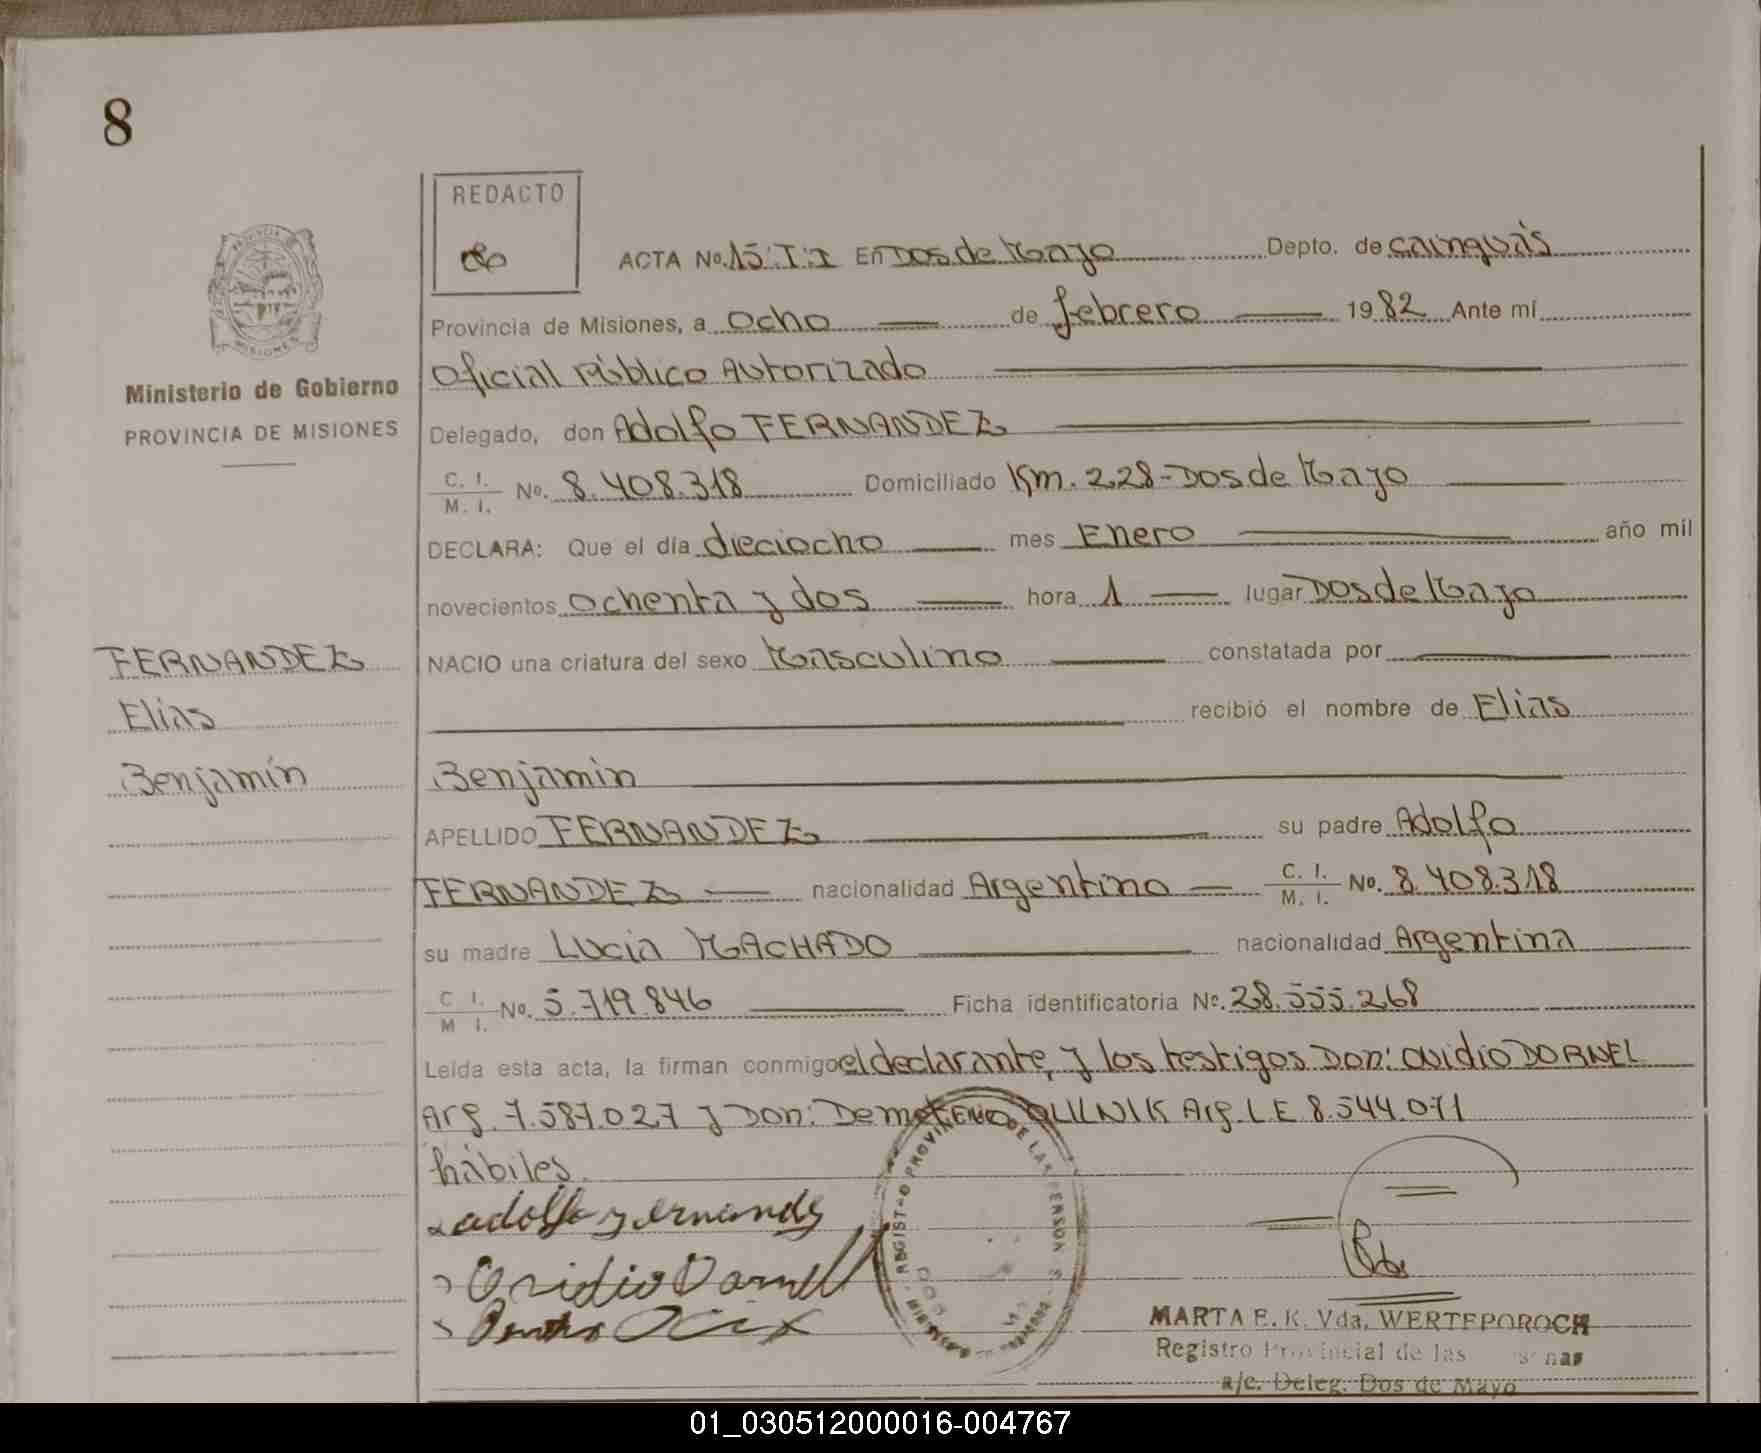 8
REDACTO
ACTA No. 15.T:I En Dos de Mayo Depto. de Cainguás
Provincia de Misiones, a ocho de febrero 1982 Ante mí
Oficial Público Autorizado
Ministerio de Gobierno
PROVINCIA DE MISIONES
Delegado, don Adolfo FERNANDEZ
C. I. M. I. No. 8.408.318 Domiciliado Km. 228-Dos de Mayo
DECLARA: Que el día dieciocho mes Enero año mil
novecientos ochenta y dos hora 1 lugar Dos de Mayo
NACIO una criatura del sexo Masculino constatada por
recibió el nombre de Elias
Benjamin
APELLIDO FERNANDEZ su padre Adolfo
FERNANDEZ nacionalidad Argentino C. I. M. I. No. 8.408.318
su madre Lucia MACHADO nacionalidad Argentina
C I. M I. No. 5.719.846 Ficha identificatoria No. 28.555.268
Leída esta acta, la firman conmigo el declarante, y los testigos Don: Ovidio DORNEL
Arg. 7.587.027 y Don: Demetrio Arg. L E 8.544.071
hábiles.
FERNANDEZ
Elias
Benjamín
adolfo fernandez
Ovidio Dornell
REGISTRO PROVINCIAL DE LAS PERSONAS
MARTA E. K. Vda. WERTEPOROCH
Registro Provincial de las Personas
a/c. Deleg. Dos de Mayo
01_030512000016-004767